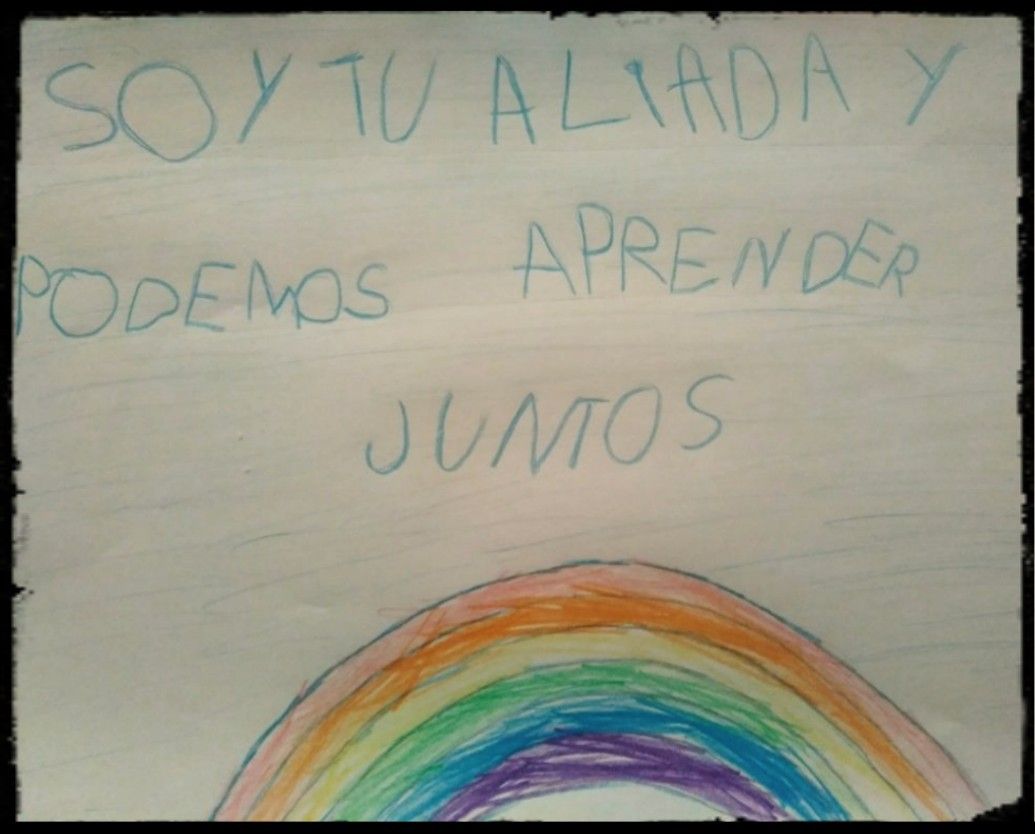 SOY TU ALIADA Y
PODEMOS APRENDER
JUNTOS